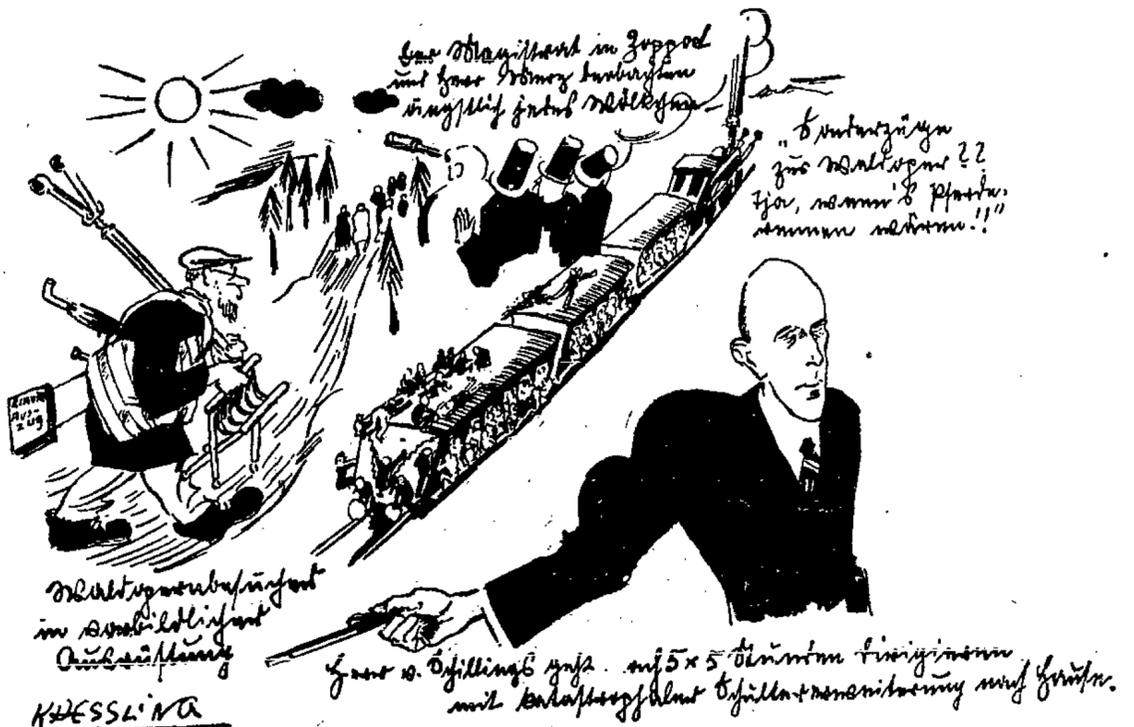 Der Magistrat in Zoppot
und Herr Merz beobachten
ängstlich jedes Wölkchen
„Sonderzüge
zur Waldoper??
Tja, wenn's Pferde-
rennen wären!!"
Klavier
Aus-
zug
Waldopernbesucher
in vorbildlicher
Ausrüstung
Herr v. Schillings geht nach 5 x 5 Stunden Dirigieren
mit katastrophaler Schultererweiterung nach Hause.